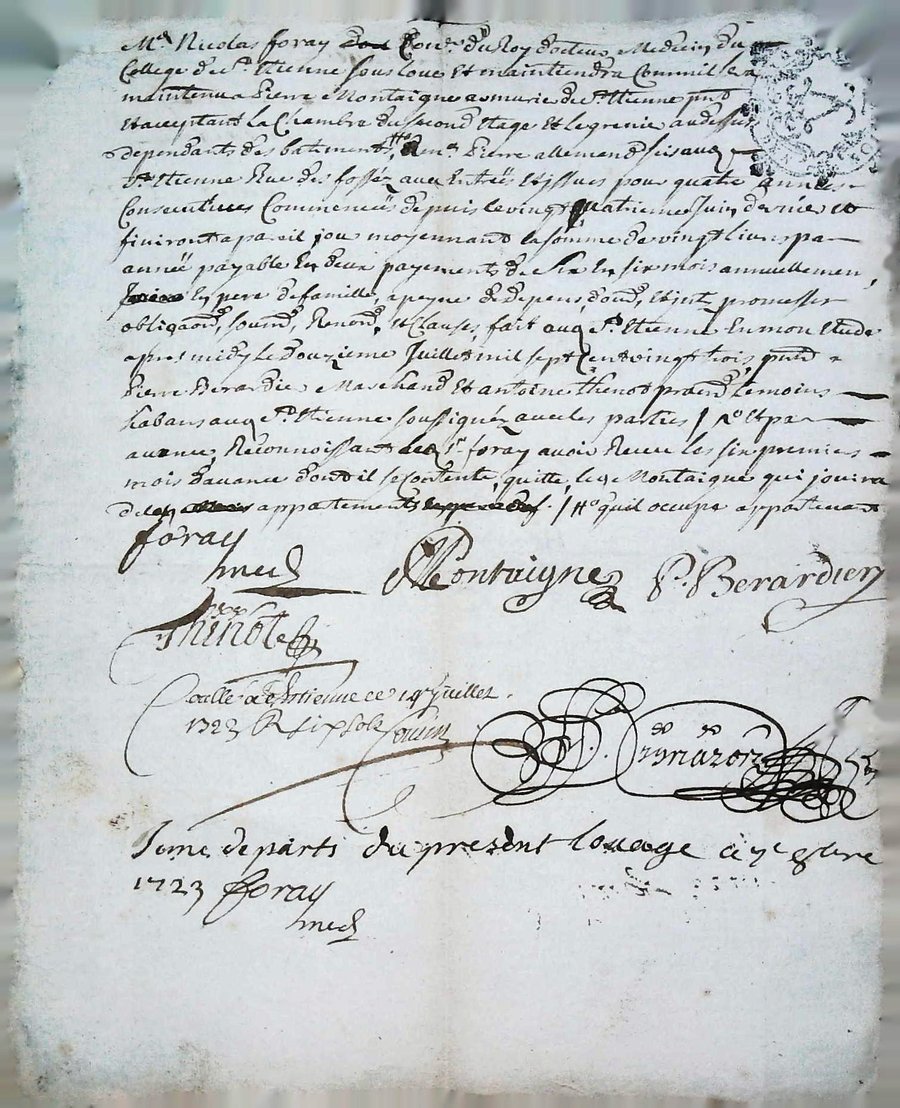 Mr Nicolas foray Conr du Roy docteur Medecin du
College de St Etienne Sous loue Et maintiendra Comme il sera
maintenu a Pierre Montaigne armurier de St Etienne pnt
Et acceptant La Chambre du second Etage Et le grenie au dessus
dependants des batiment Pierre allemand sis aud
St Etienne Rue des fossez aux Entreës Et issues pour quatre années
Consecutiues Commenceës depuis le vingt quatrieme Juin dernier et
finiront a pareil jour moyennant la somme de vingt liures par
anneë payable En deux payements de Six En six mois annuellement
En pere de famille, a peyne de depens, promesses
obligaons, soums, Renons, et Clauses, fait aud St Etienne En mon Etude
apres midy le douzieme Juillet mil sept Cent vingt trois, pnts
Pierre Berardier Marchand Et antoine thenot temoins
habans aud St Etienne soussignéz auec les parties / Et par
auance Reconnoissant led Sr foray auoir Receu les six premiers
mois dauance dont il se contente, quitte, led Montaigne qui jouira
appartements / quil occupe appartenant
foray
med
Montaigne P. Berardier
thinot
Colle a St Etienne ce juillet
1723 R six sols

2eme departs du present louage à 9bre
1723 foray
med